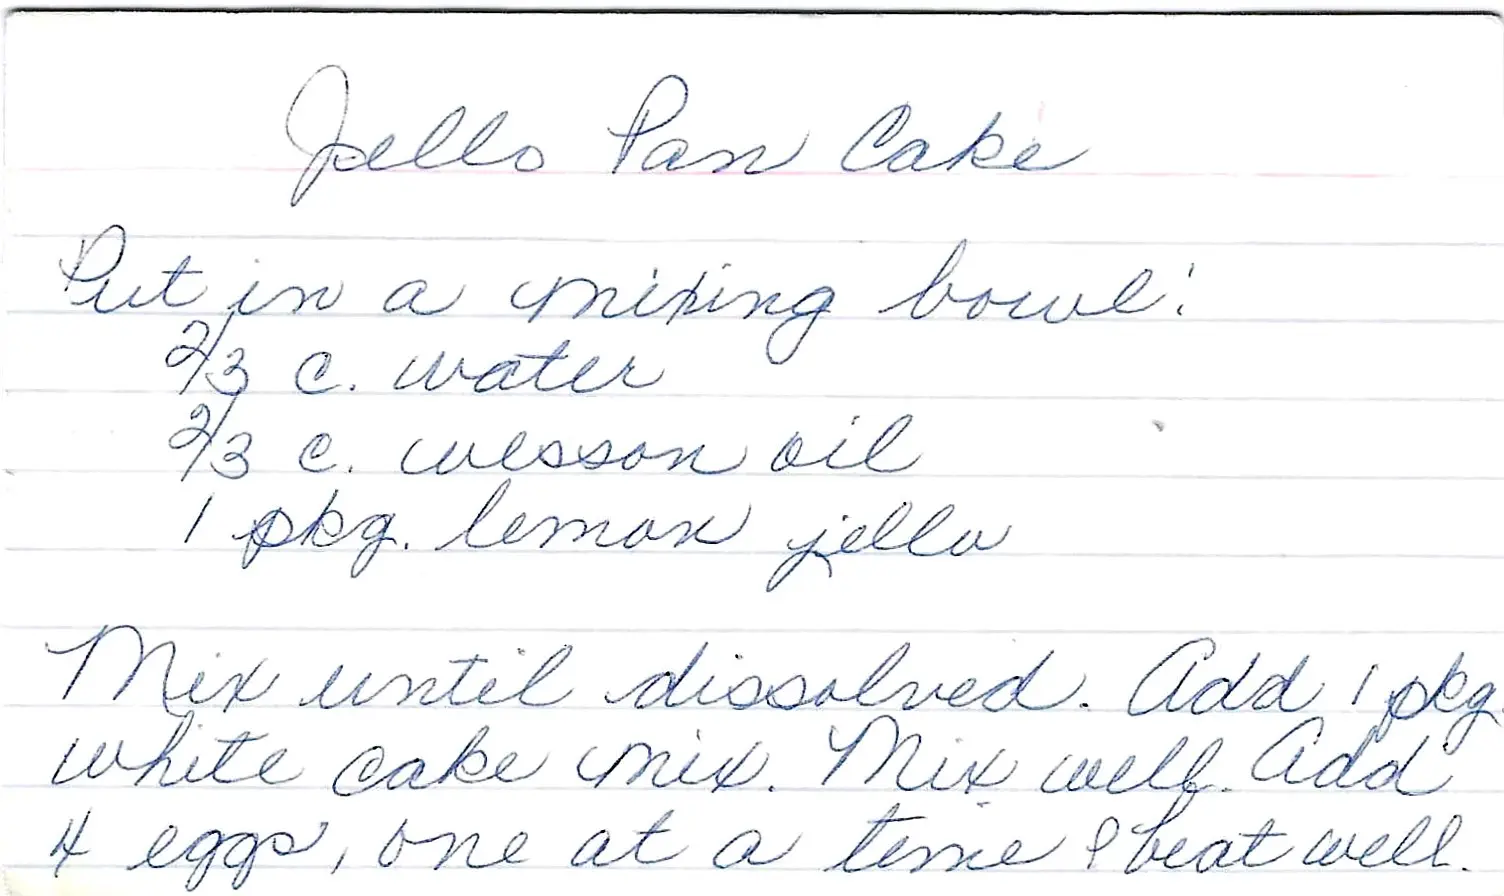 Jello Pan Cake
Put in a mixing bowl:
2/3 c. water
2/3 c. wesson oil
1 pkg. lemon jello
Mix until dissolved. Add 1 pkg.
white cake mix. Mix well. Add
4 eggs, one at a time & beat well.